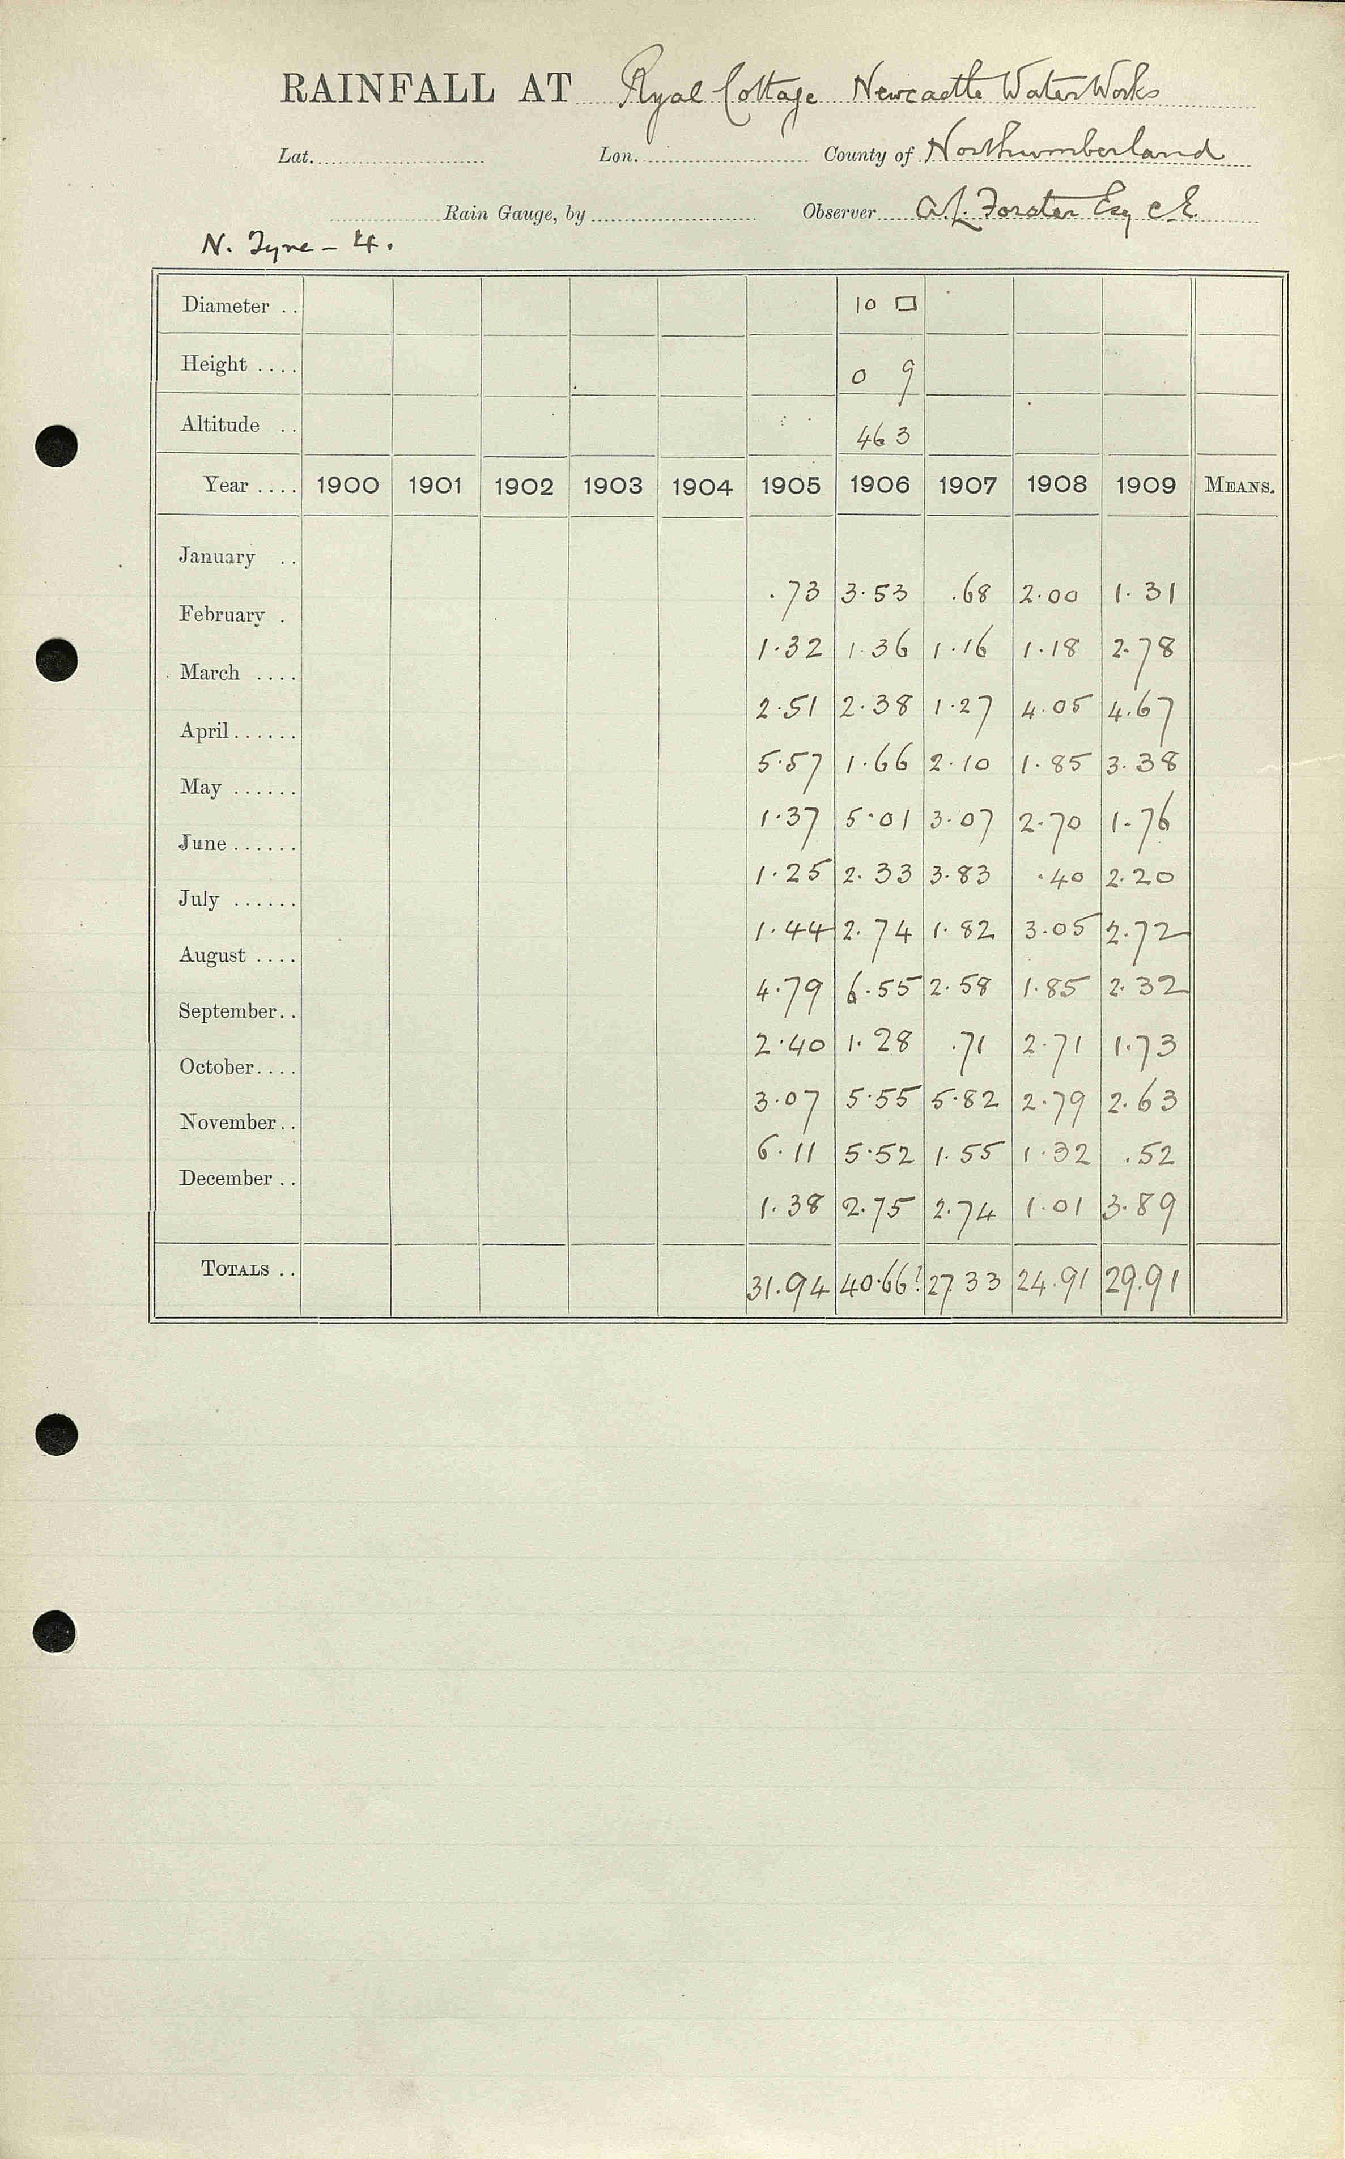 RAINFALL AT Ryal Cottage Newcastle Water Works
Lat. Lon. County of Northumberland
Rain Gauge, by Observer A.L. Forster Esq C.E.
N. Tyne - 4.
Diameter .. 10 □
Height .... 0 9
Altitude .. 463
Year .... 1900 1901 1902 1903 1904 1905 1906 1907 1908 1909 MEANS.
January .. .73 3.53 .68 2.00 1.31
February . 1.32 1.36 1.16 1.18 2.78
March .... 2.51 2.38 1.27 4.05 4.67
April...... 5.57 1.66 2.10 1.85 3.38
May ...... 1.37 5.01 3.07 2.70 1.76
June ...... 1.25 2.33 3.83 .40 2.20
July ...... 1.44 2.74 1.82 3.05 2.72
August .... 4.79 6.55 2.58 1.85 2.32
September.. 2.40 1.28 .71 2.71 1.73
October.... 3.07 5.55 5.82 2.79 2.63
November.. 6.11 5.52 1.55 1.32 .52
December .. 1.38 2.75 2.74 1.01 3.89
TOTALS .. 31.94 40.66? 27.33 24.91 29.91